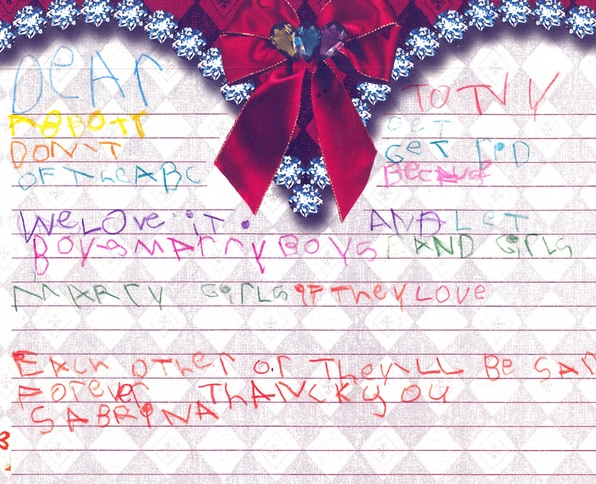 DeAr TO TNY
ABBOTT
DON'T GeT rID
OF THeABC Because
WeLOve iT. AND LeT
BOYS MArrY BOYS AND GirLS
MArrY GirLS iF THeY LOVE
EACH OTHer Or THeY'LL Be SAD
FOrever THANCKyOU
SABRiNA